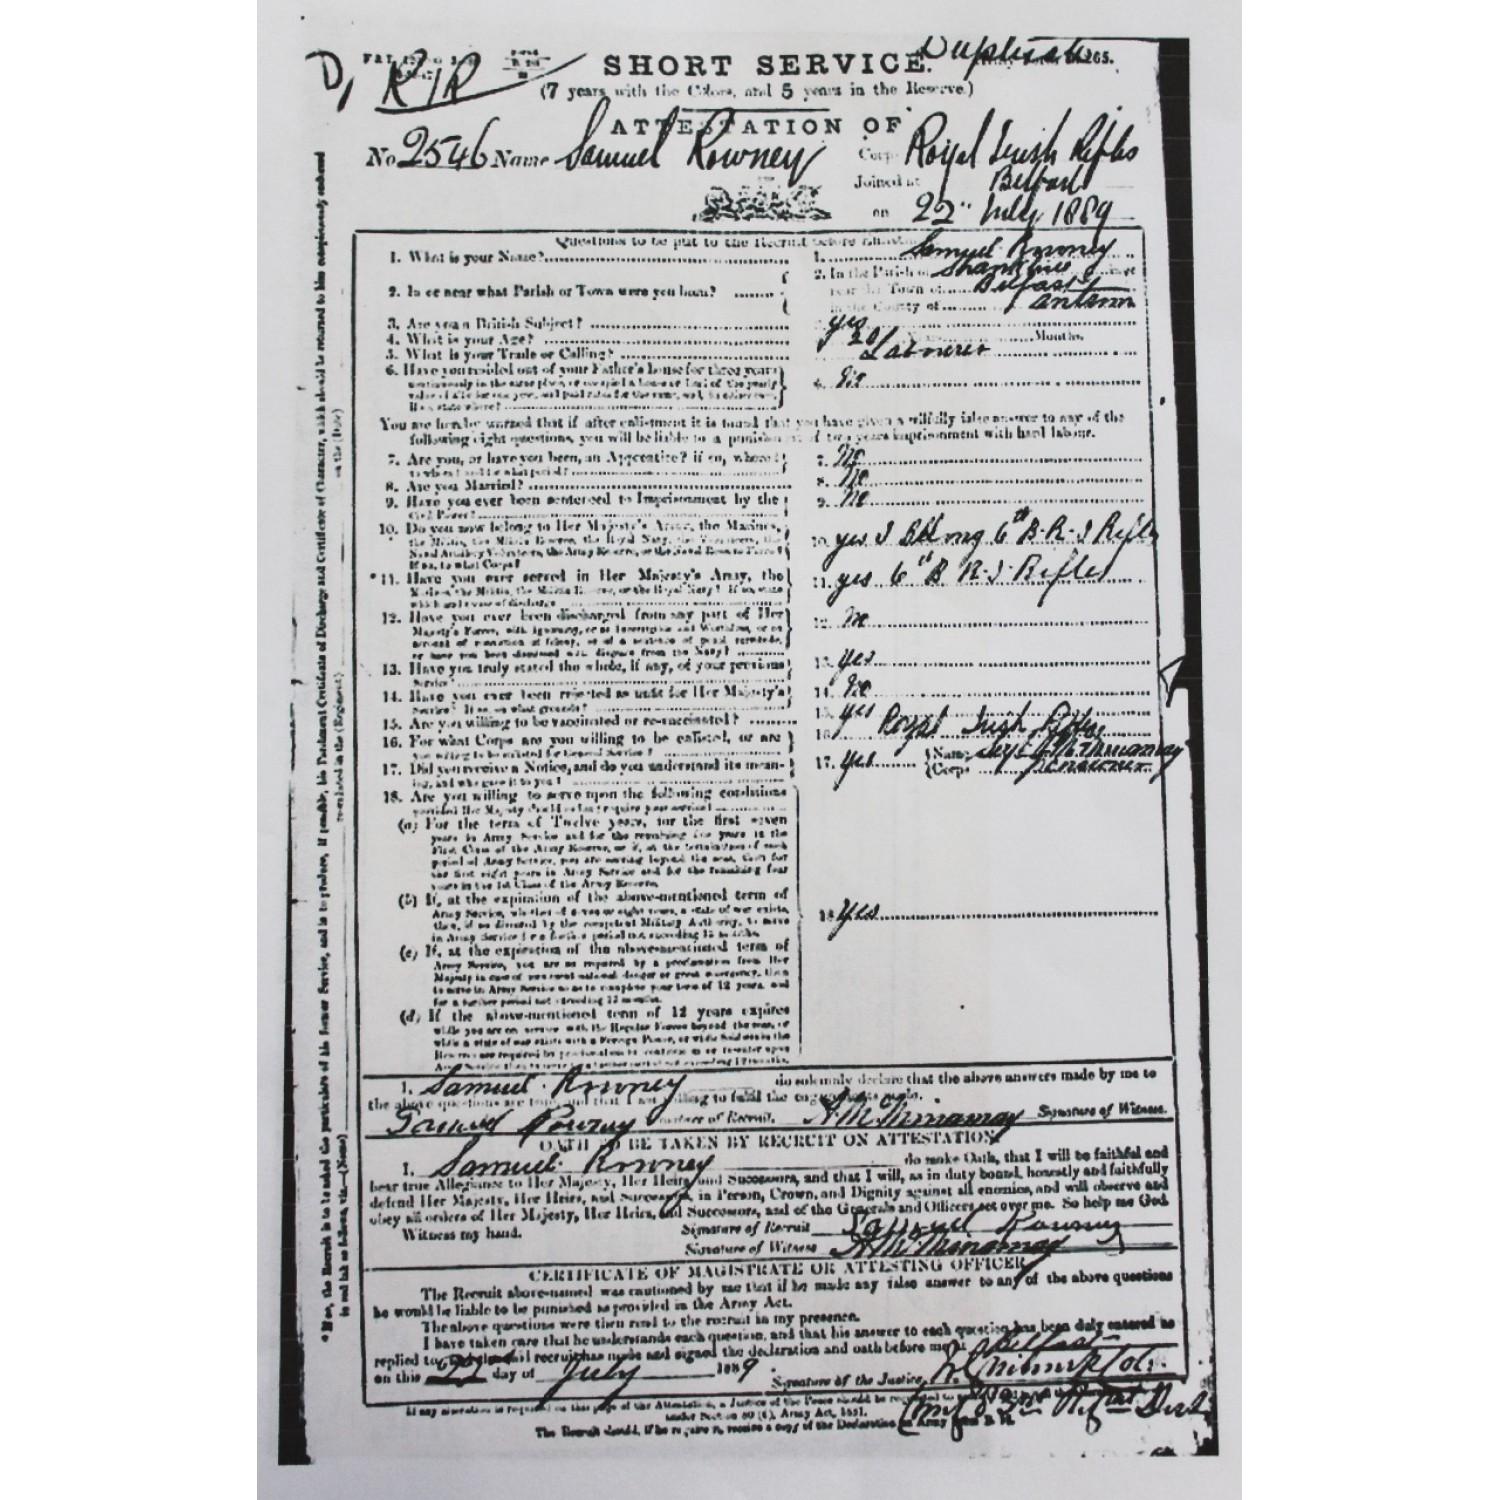 D, R I R Duplicate 265.
SHORT SERVICE.
(7 years with the Colors, and 5 years in the Reserve.)
ATTESTATION OF
No 2546 Name Samuel Rowney Corps Royal Irish Rifles
Joined at Belfast
on 22" July 1889
Questions to be put to the Recruit before
1. What is your Name? 1. Samuel Rowney
2. In or near what Parish or Town were you born? 2. In the Parish of
near the Town of Belfast
in the County of Antrim
3. Are you a British Subject? yes
4. What is your Age? 20 Years Months.
5. What is your Trade or Calling? Labourer
6. Have you resided out of your Father's house for three years
continuously in the same place, or occupied a house or land of the yearly
6. No
You are hereby warned that if after enlistment it is found that you have given a wilfully false answer to any of the
following eight questions, you will be liable to a punishment of two years imprisonment with hard labour.
7. Are you, or have you been, an Apprentice? if so, where? 7. No
8. Are you Married? 8. No
9. Have you ever been sentenced to Imprisonment by the
Civil Power? 9. No
10. Do you now belong to Her Majesty's Army, the Marines,
the Militia, the Militia Reserve, the Royal Navy, the Volunteers, the
Naval Artillery Volunteers, the Army Reserve, or the Naval Reserve Forces?
If so, to what Corps? 10. yes 6th B. R. I Rifles
*11. Have you ever served in Her Majesty's Army, the
Marines, the Militia, the Militia Reserve, or the Royal Navy? If so, state
which and cause of discharge 11. yes 6th B R. I. Rifles
12. Have you ever been discharged from any part of Her
Majesty's Forces, with Ignominy, or as Incorrigible and Worthless, or on
account of conviction of felony, or of a sentence of penal servitude,
or have you been dismissed with disgrace from the Navy? 12. no
13. Have you truly stated the whole, if any, of your previous
Service? 13. yes
14. Have you ever been rejected as unfit for Her Majesty's
Service? If so, on what grounds? 14. No
15. Are you willing to be vaccinated or re-vaccinated? 15. yes
16. For what Corps are you willing to be enlisted, or are
you willing to be enlisted for General Service? 16. Royal Irish Rifles
17. Did you receive a Notice, and do you understand its mean-
ing, and who gave it to you? 17. yes {Name
{Corps Pensioner
18. Are you willing to serve upon the following conditions
provided Her Majesty should so long require your services?
(a) For the term of Twelve years, for the first seven
years in Army Service and for the remaining five years in the
First Class of the Army Reserve, or if, at the termination of such
period of Army Service, you are serving beyond the seas, then for
the first eight years in Army Service and for the remaining four
years in the 1st Class of the Army Reserve.
(b) If, at the expiration of the above-mentioned term of
Army Service, whether of seven or eight years, a state of war exists,
then, if so directed by the competent Military Authority, to serve
in Army Service for a further period not exceeding 12 months.
18. Yes
(c) If, at the expiration of the above-mentioned term of
Army Service, you are so required by a proclamation from Her
Majesty in case of imminent national danger or great emergency, then
to serve in Army Service so as to complete your term of 12 years, and
for a further period not exceeding 12 months.
(d) If the above-mentioned term of 12 years expires
while you are on service with the Regular Forces beyond the seas, or
while a state of war exists with a Foreign Power, or while Soldiers in the
Reserve are required by proclamation to continue in or re-enter upon
I, Samuel Rowney do solemnly declare that the above answers made by me to
the above questions are true, and that I am willing to fulfil the engagements made.
Samuel Rowney Signature of Recruit. Signature of Witness.
OATH TO BE TAKEN BY RECRUIT ON ATTESTATION
I, Samuel Rowney do make Oath, that I will be faithful and
bear true Allegiance to Her Majesty, Her Heirs, and Successors, and that I will, as in duty bound, honestly and faithfully
defend Her Majesty, Her Heirs, and Successors, in Person, Crown, and Dignity against all enemies, and will observe and
obey all orders of Her Majesty, Her Heirs, and Successors, and of the Generals and Officers set over me. So help me God.
Witness my hand. Signature of Recruit Samuel Rowney
Signature of Witness
CERTIFICATE OF MAGISTRATE OR ATTESTING OFFICER
The Recruit above-named was cautioned by me that if he made any false answer to any of the above questions
he would be liable to be punished as provided in the Army Act.
The above questions were then read to the recruit in my presence.
I have taken care that he understands each question, and that his answer to each question has been duly entered as
replied to, and the said recruit has made and signed the declaration and oath before me at Belfast
on this 22 day of July 1889.
Signature of the Justice
If any alteration is required on this page of the Attestation, a Justice of the Peace should be requested to
under Section 80 (6), Army Act, 1881.
The Recruit should, if he require it, receive a copy of the Declaration on Army Form
* If so, the Recruit is to be asked the particulars of his former Service, and is to produce, if possible, his Parchment Certificate of Discharge and Certificate of Character, which should be returned to him conspicuously endorsed
in red ink as follows, viz.—(Name) re-enlisted in the (Regiment) on the (Date)